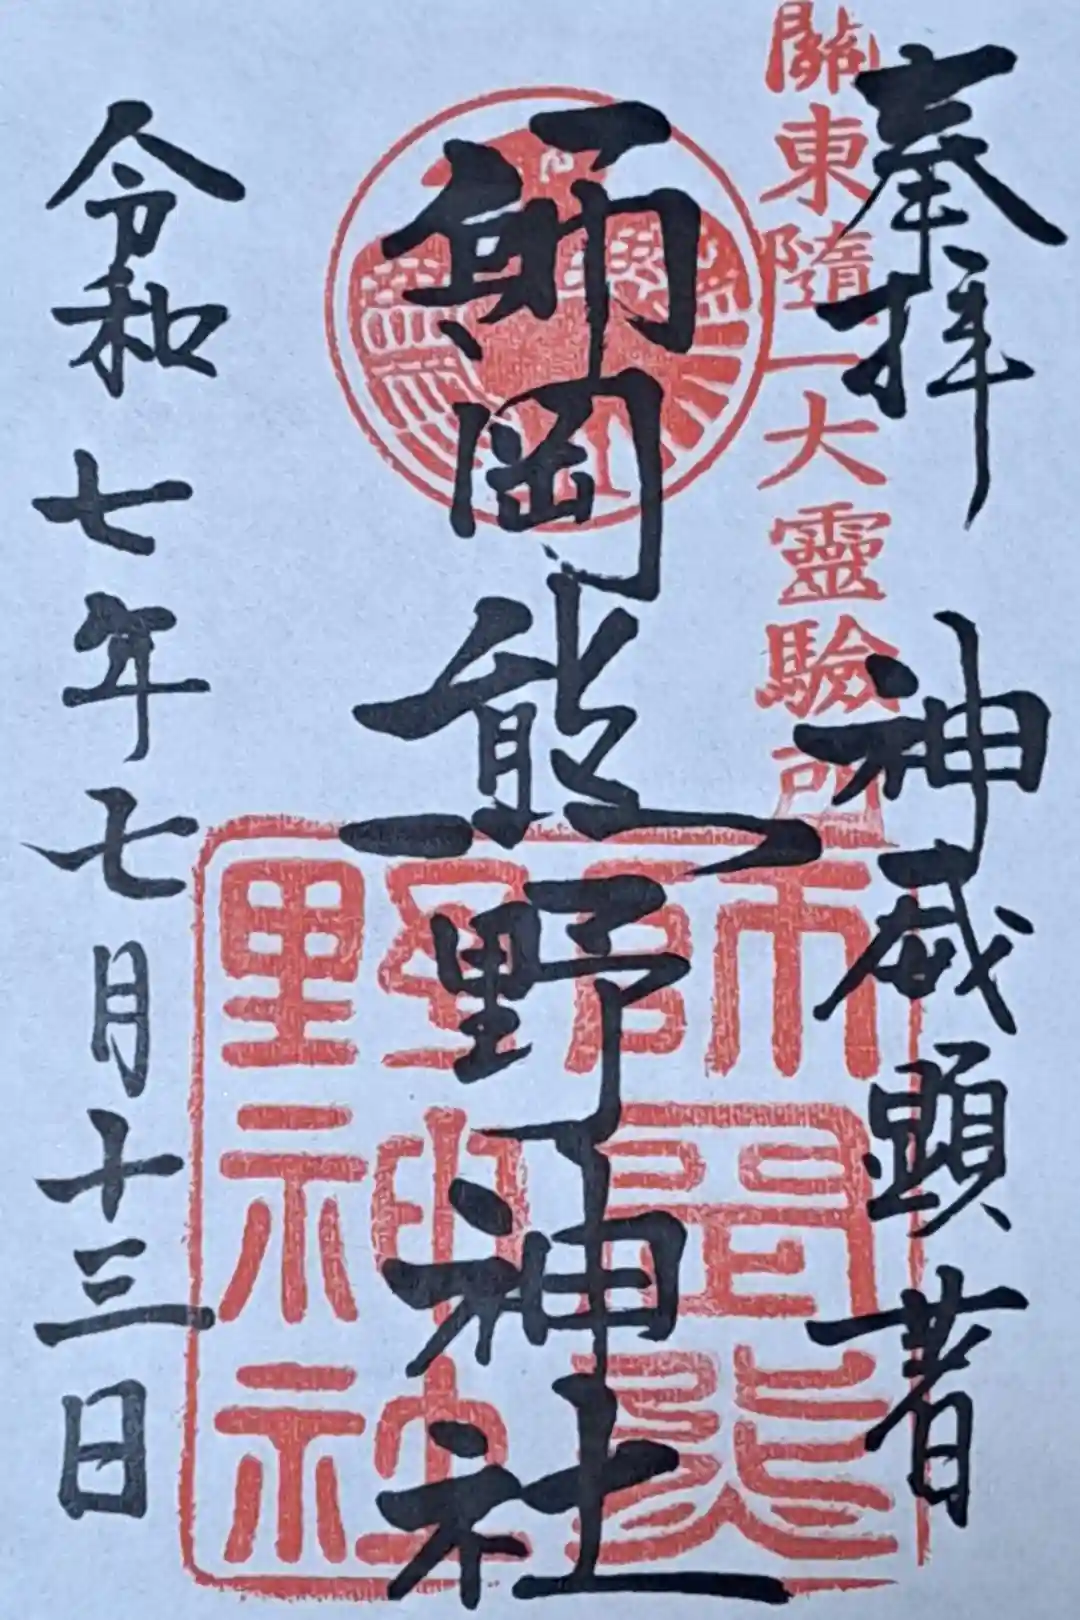 奉拝 神威顕著
關東隨一大靈驗所
師岡熊野神社
師岡熊野神社
令和七年七月十三日